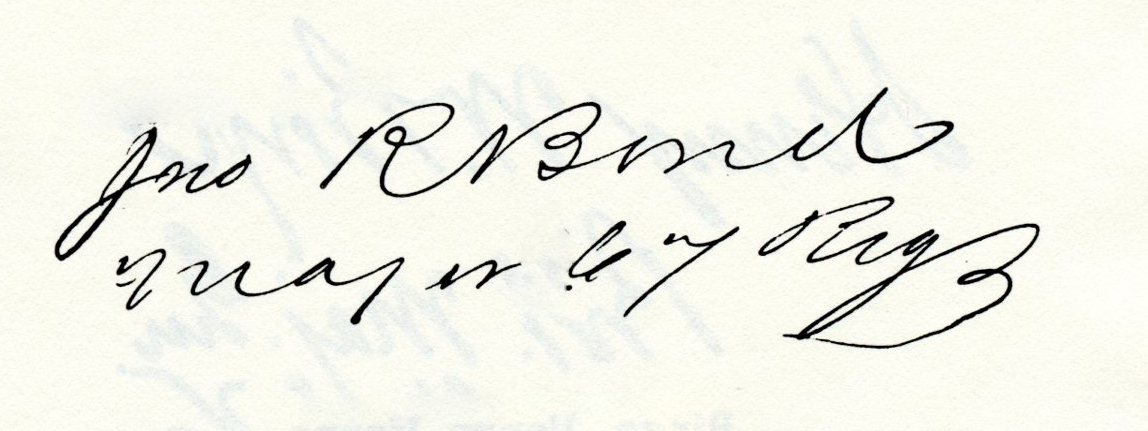 Jno R Bond
Major 67 Reg